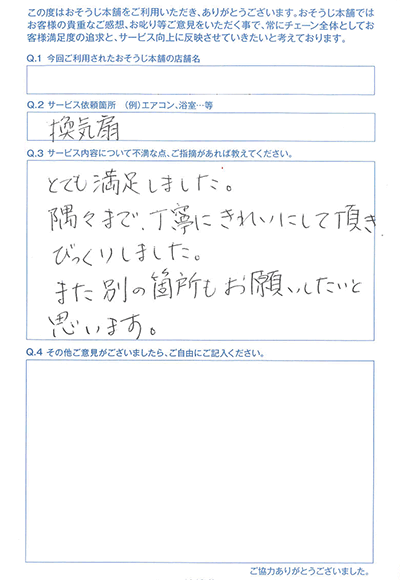 この度はおそうじ本舗をご利用いただき、ありがとうございます。おそうじ本舗では
お客様の貴重なご感想、お叱り等ご意見をいただく事で、常にチェーン全体としてお
客様満足度の追求と、サービス向上に反映させていきたいと考えております。
Q.1 今回ご利用されたおそうじ本舗の店舗名
Q.2 サービス依頼箇所 (例)エアコン、浴室…等
換気扇
Q.3 サービス内容について不満な点、ご指摘があれば教えてください。
とても満足しました。
隅々まで、丁寧にきれいにして頂き
びっくりしました。
また別の箇所もお願いしたいと
思います。
Q.4 その他ご意見がございましたら、ご自由にご記入ください。
ご協力ありがとうございました。